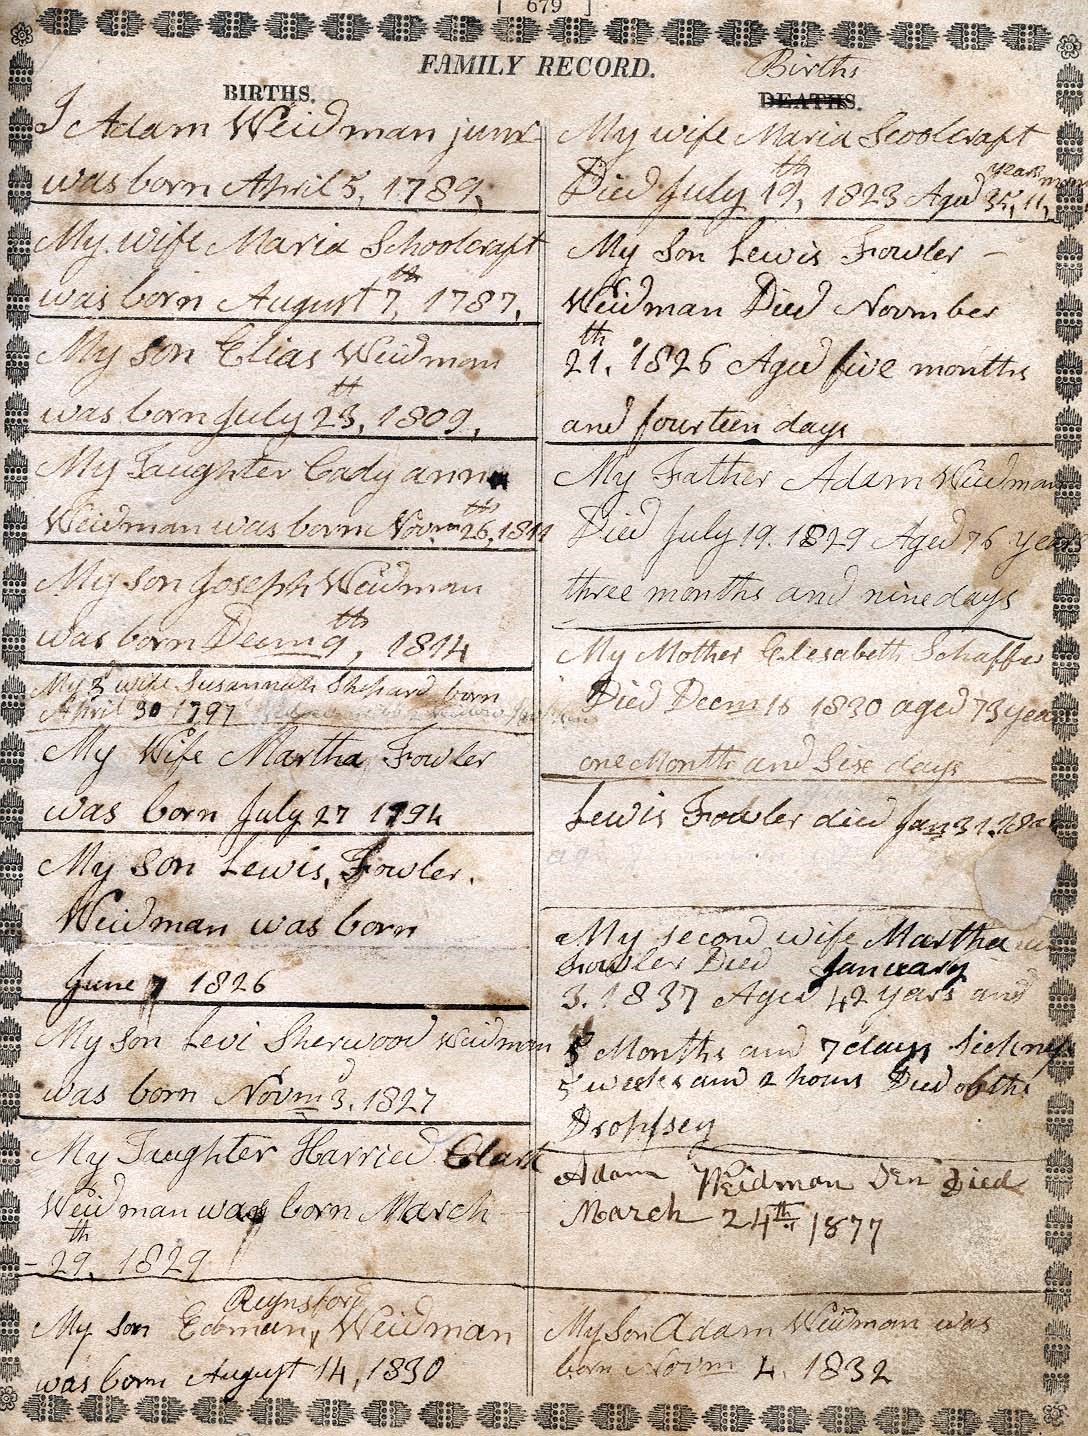 [ 679 ]
FAMILY RECORD.
BIRTHS.
I Adam Weidman junr
was born April 5, 1789,
My wife Maria Schoolcraft
was born August 7th, 1787,
My Son Elias Weidman
was born July 23th, 1809,
My Daughter Cady ann
Weidman was born Novm 26th, 1811
My Son Joseph Weidman
was born Decm 9th, 1814
My 3 wife Susannah Shepard born
April 30 1797
My Wife Martha Fowler
was born July 27 1794
My Son Lewis, Fowler.
Weidman was born
June 7 1826
My Son Levi Sherwood Weidman
was born Novm 3d. 1827
My Daughter Harried Clark
Weidman was born March
- 29th, 1829
Reynsford
My Son Edman, Weidman
was born August 14, 1830
Births
DEATHS.
My wife Maria Scoolcraft
years mon
Died July 19th, 1823 Aged 35, 11,
My Son Lewis Fowler -
Weidman Died Novmber
21th, 1826 Aged five months
and fourteen days
My Father Adam Weidman
Died July 19. 1829 Aged 76 years
three months and nine days
My Mother Elesabeth Schaffer
Died Decm 18 1830 aged 73 year
one Month and Six days
Lewis Fowler died Jan 31.
My second wife Martha
Fowler Died January
3. 1837 Aged 42 years and
5 Months and 7 days Sickness
5 weeks and 2 hours Died of the
Dropsey
Adam Weidman Sen Died
March 24th 1877
My Son Adam Weidman was
born Novm 4. 1832